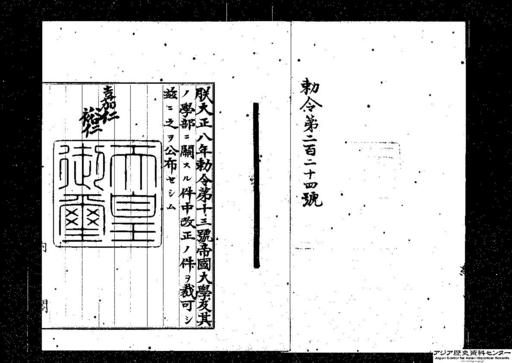 勅令第二百二十四號
朕大正八年勅令第十三號帝國大學及其
ノ學部ニ關スル件中改正ノ件ヲ裁可シ
茲ニ之ヲ公布セシム
嘉仁
裕仁
天皇
御璽
アジア歴史資料センター
Japan Center for Asian Historical Records